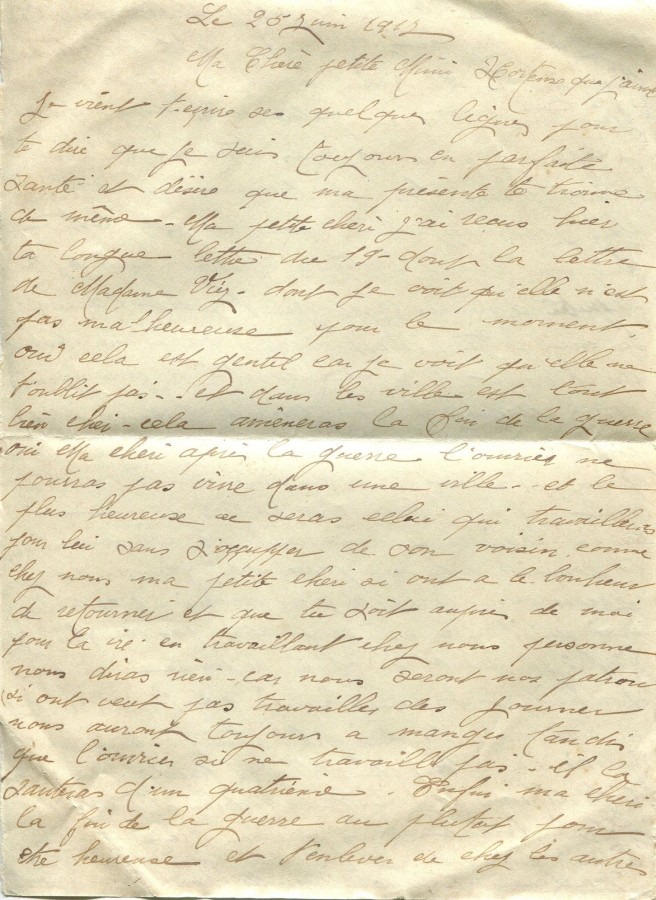 Le 25 Juin 1917
Ma Chère petite Mimi Hortense que j'aime
Je vient t'ecrire ses quelques lignes pour
te dire que je suis toujours en parfaite
santé et désire que ma présente te trouve
de même - Ma petite cheri j'ai recus hier
ta longue lettre du 19 - dont la lettre
de Madame - dont je voit qu'elle n'est
pas malheureuse pour le moment,
oui cela est gentil car je voit qu'elle ne
t'oublit pas - et dans les ville est tout
bien cher - cela amèneras la fin de la guerre
oui Ma cheri après la guerre l'ouvrier ne
pourras pas vivre dans une ville - et le
plus heureuse ce seras celui qui travailleras
pour lui sans s'occupper de son voisin comme
chez nous ma petite cheri si ont a le bonheur
de retourner et que tu soit auprès de moi
pour la vie en travaillant chez nous personne
nous diras rien - car nous seront nos patron
si ont veut pas travailler des journer
nous auront toujours a manger tandis
que l'ouvrier si ne travaille pas - il la
sauteras d'un quatrième. Enfin ma cheri
la fin de la guerre au plutot pour
etre heureuse et t'enlever de chez les autres